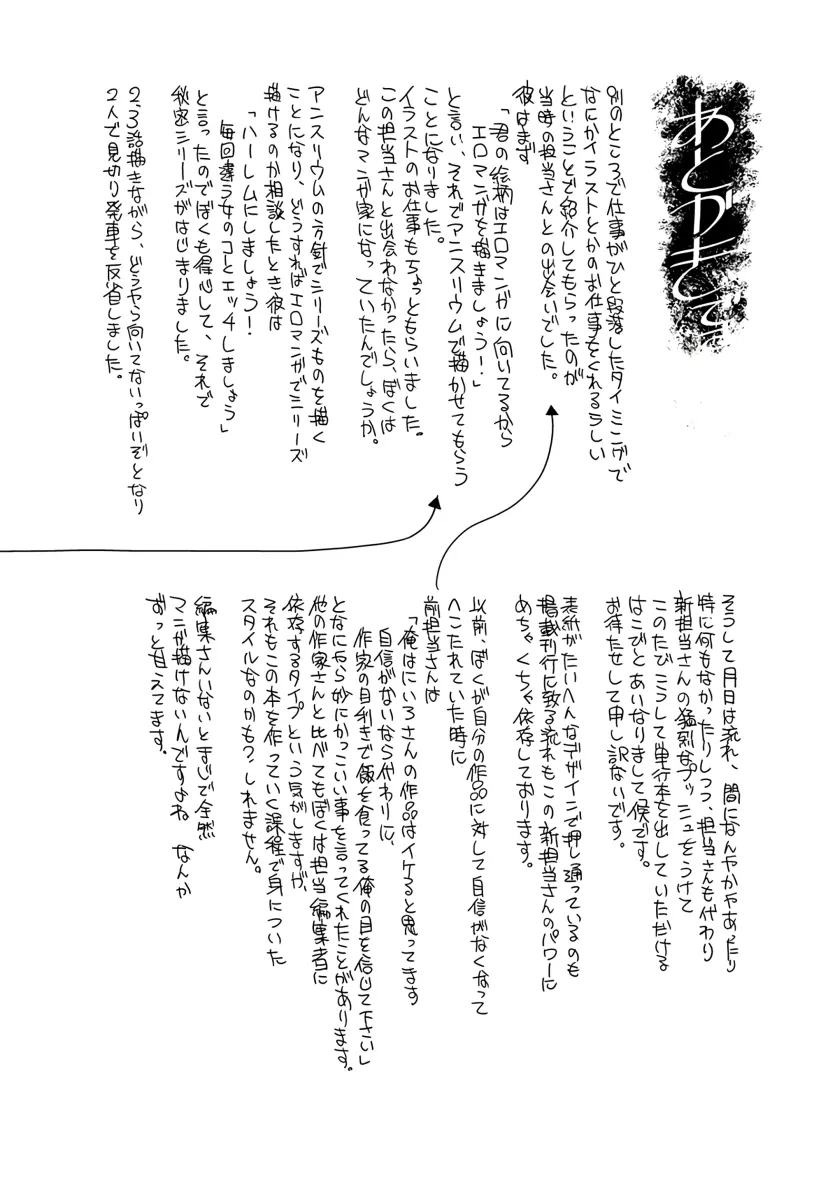 あとがきです
別のところで仕事がひと段落したタイミングで
なにかイラストとかのお仕事をくれるらしい
ということで紹介してもらったのが
当時の担当さんとの出会いでした。
彼はまず
「君の絵柄はエロマンガに向いてるから
エロマンガを描きましょう！」
と言い、それでアンスリウムで描かせてもらう
ことになりました。
イラストのお仕事もちょっともらいました。
この担当さんと出会わなかったら、ぼくは
どんなマンガ家になっていたんでしょうか。
アンスリウムの方針でシリーズものを描く
ことになり、どうすればエロマンガでシリーズ
描けるのか相談したとき彼は
「ハーレムにしましょう！
毎回違う女のコとエッチしましょう」
と言ったのでぼくも得心して、それで
秘密シリーズがはじまりました。
2,3話描きながら、どうやら向いてないっぽいぞとなり
2人で見切り発車を反省しました。
そうして月日は流れ、間になんやかやあったり
特に何もなかったりしつつ、担当さんも代わり
新担当さんの猛烈なプッシュをうけて
このたびこうして単行本を出していただける
はこびとあいなりまして候です。
お待たせして申し訳ないです。
表紙がたいへんなデザインで押し通っているのも
掲載刊行に致る流れもこの新担当さんのパワーに
めちゃくちゃ依存しております。
以前、ぼくが自分の作品に対して自信がなくなって
へこたれていた時に
前担当さんは
「俺はにいろさんの作品はイケると思ってます
自信がないなら代わりに、
作家の目利きで飯を食ってる俺の目を信じて下さい」
となにやら妙にかっこいい事を言ってくれたことがあります。
他の作家さんと比べてもぼくは担当編集者に
依存するタイプという気がしますが、
それもこの本を作っていく課程で身についた
スタイルなのかも？しれません。
編集さんいないとまじで全然
マンガ描けないんですよね なんか
ずっと甘えてます。